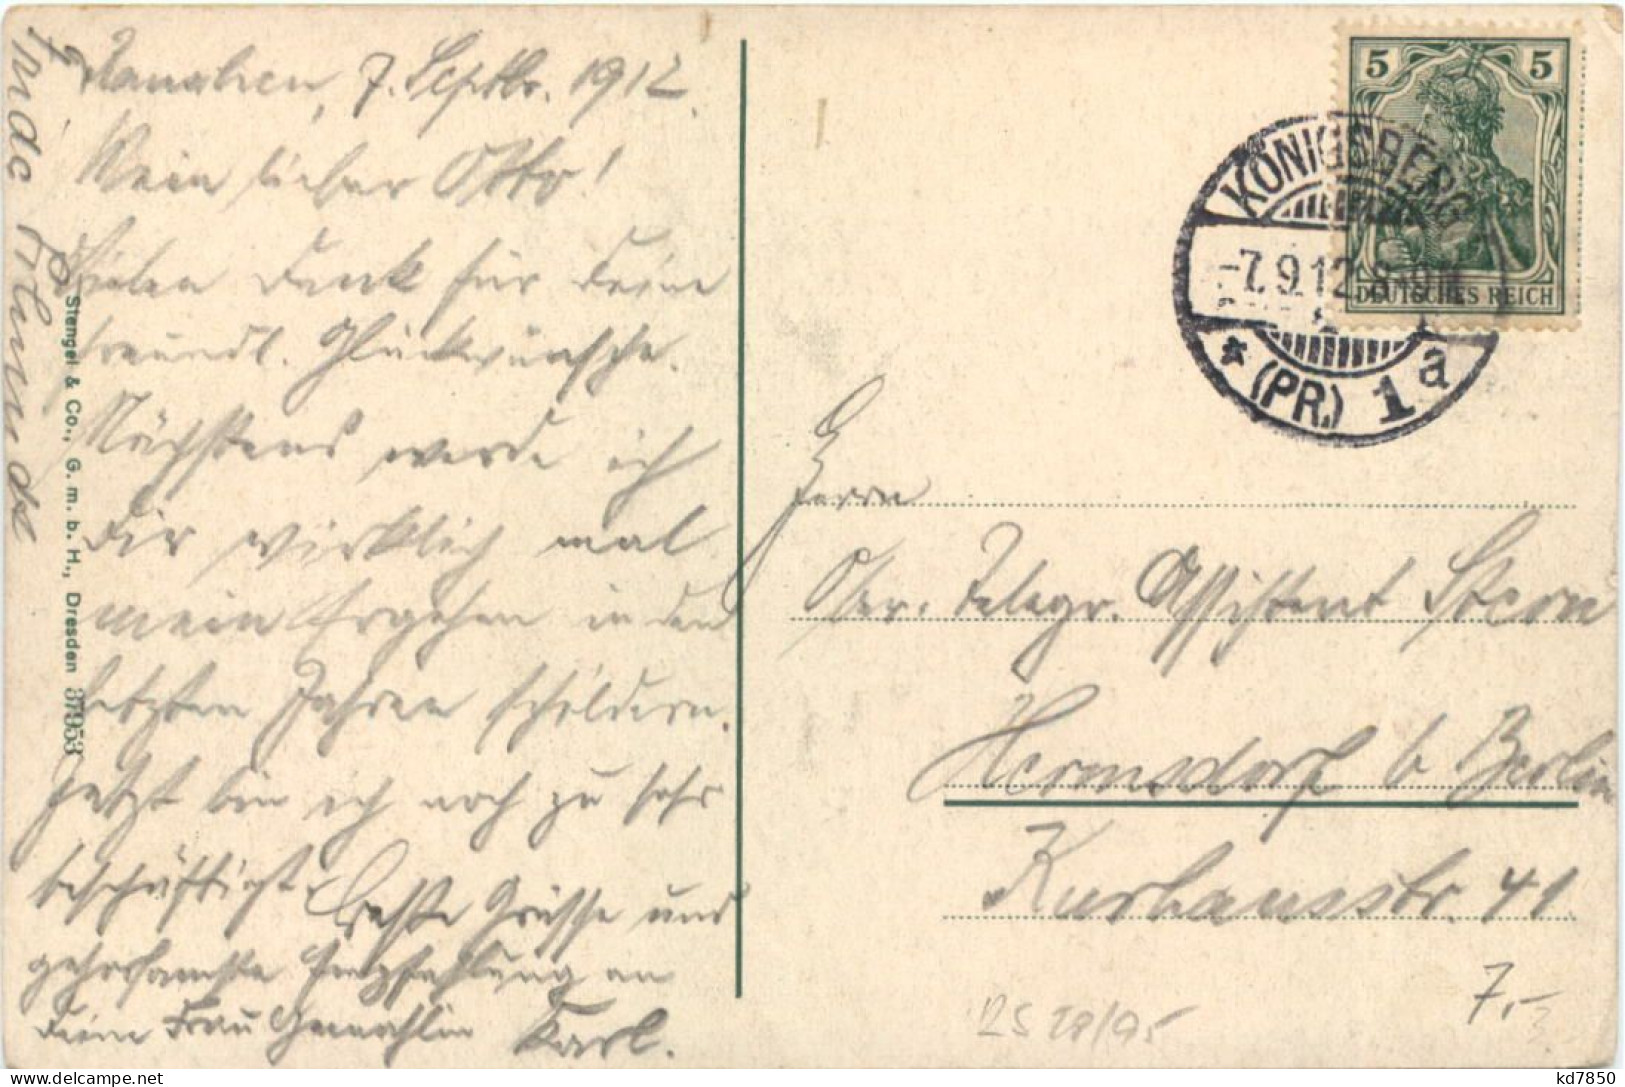 7. Septbr. 1912.
Mein lieber Otto!
Vielen Dank für Deine
freundl. Glückwünsche.
Nächstens werde ich
Dir wirklich mal
mein Ergehen in den
letzten Jahren schildern.
Jetzt bin ich noch zu sehr
beschäftigt. Beste Grüsse und
gehorsamste Empfehlung an
Deine Frau Gemahlin Karl.
Stengel & Co., G. m. b. H., Dresden 37953
5 5
DEUTSCHES REICH
KÖNIGSBERG
-7.9.12. 8-9N
* (PR.) 1 a
Herrn
Ober-Telegr. Assistent Stern
Hermsdorf b Berlin
Kurhausstr. 41
7,-
kd7850